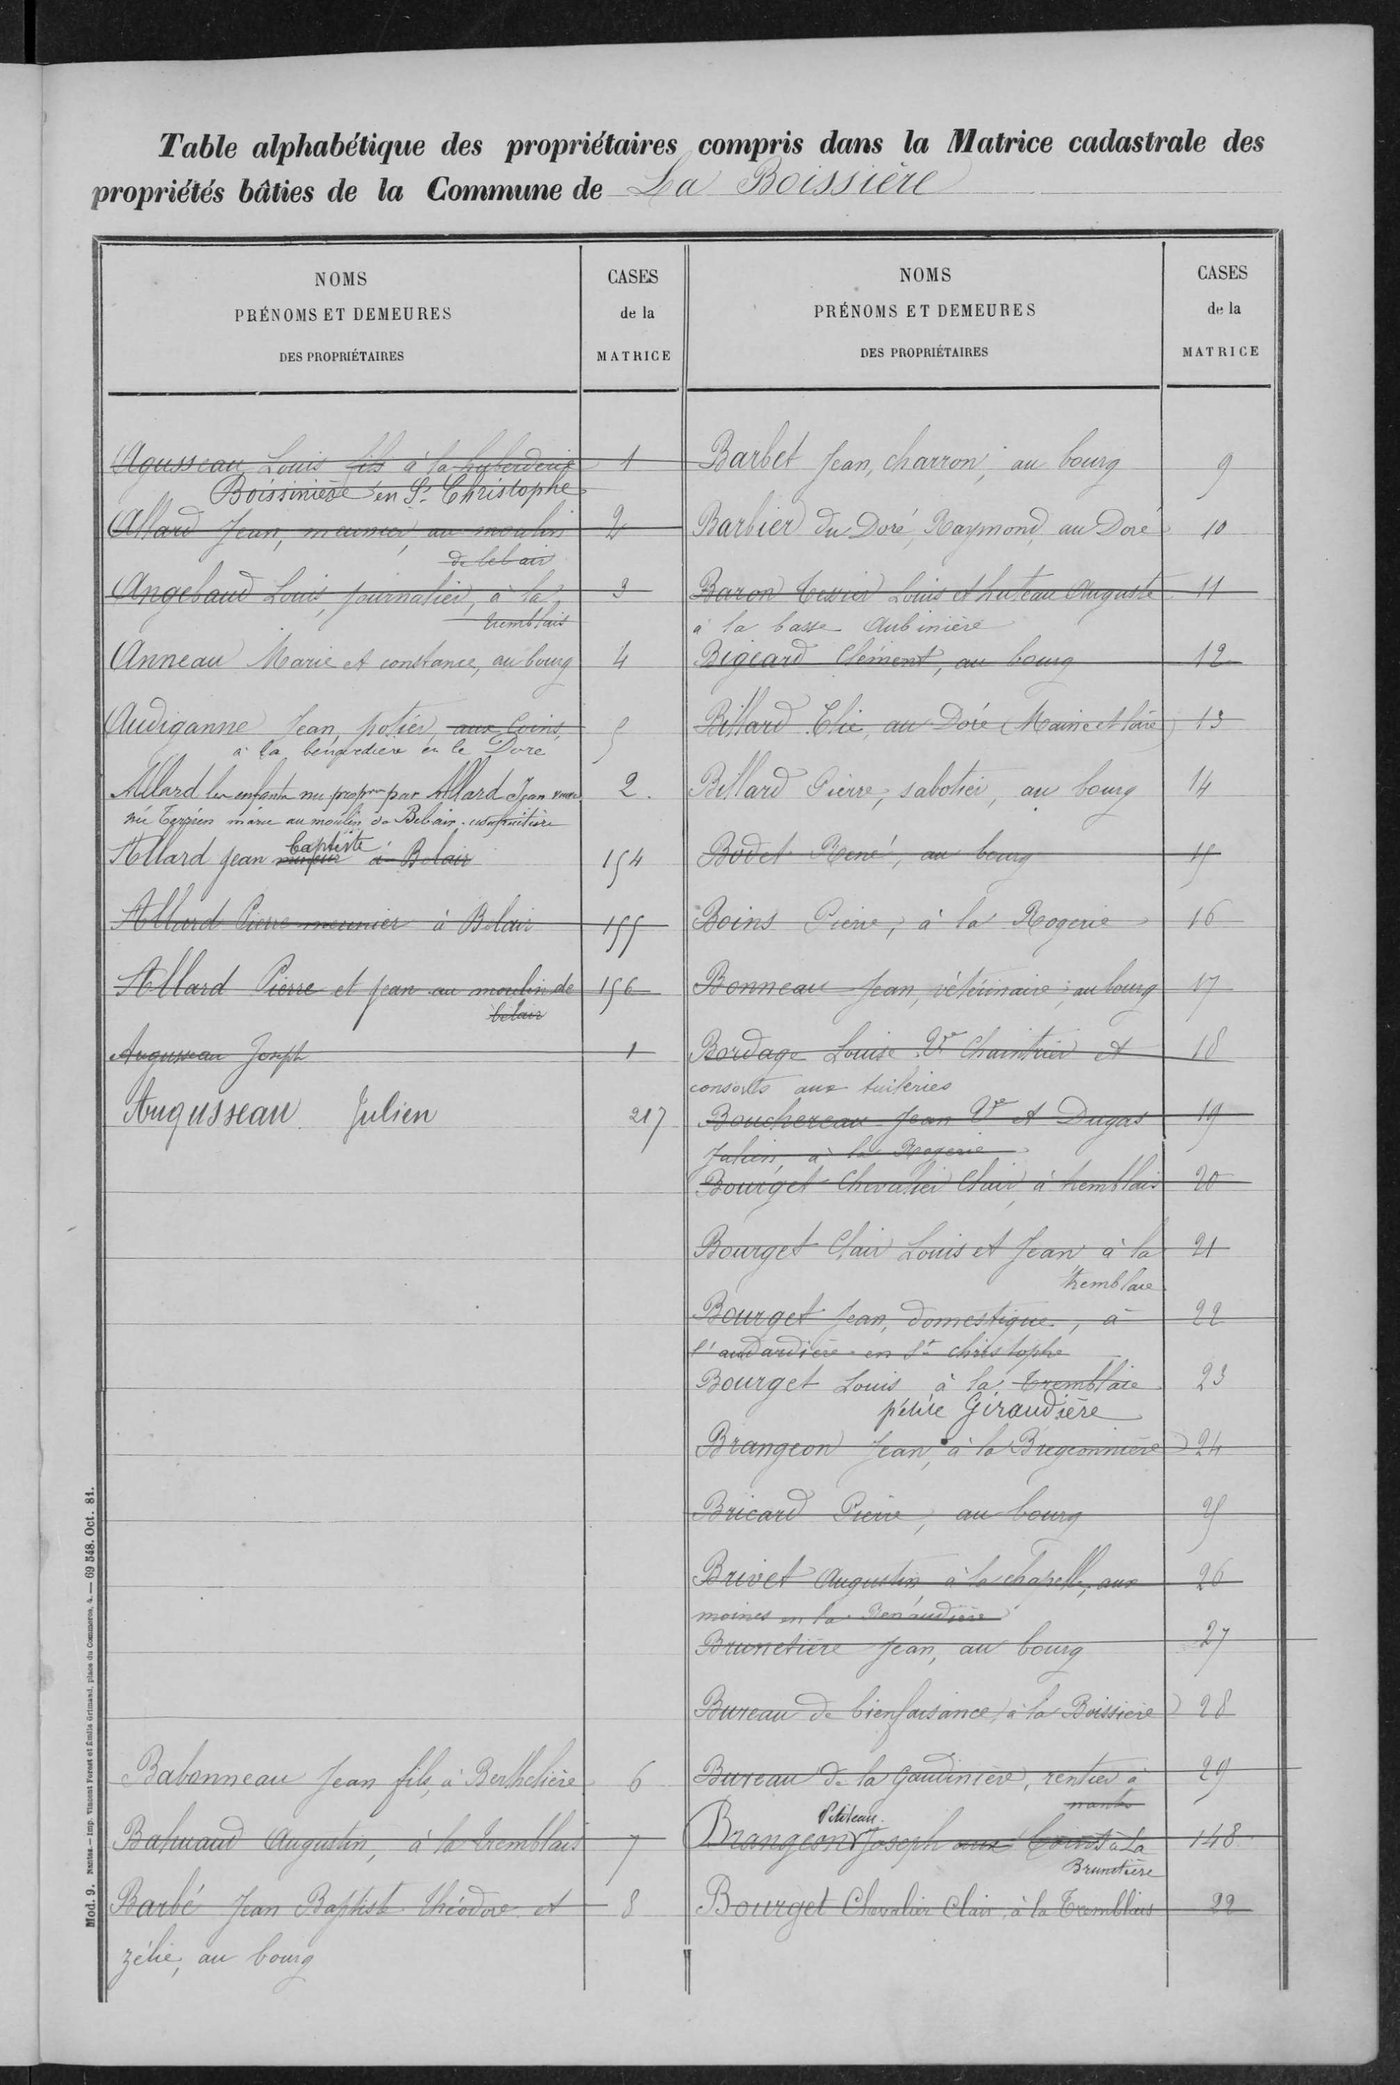 Table alphabétique des propriétaires compris dans la Matrice cadastrale des
propriétés bâties de la Commune de La Boissière
NOMS
PRÉNOMS ET DEMEURES
DES PROPRIÉTAIRES
CASES
de la
MATRICE
Agusseau Louis fils à la huberderie 1
Boissinière en St Christophe
Allard Jean, meunier, au moulin 2
de bel air
Angebaud Louis, journalier, à la 3
tremblais
Anneau Marie et constance, au bourg 4
Audiganne Jean, potier, aux Coins, 5
à la benardiere en le Doré
Allard les enfants nu propres par Allard Jean 2.
née Terrien marie au moulin de Belair usufruitière
Allard Jean mineur Baptiste à Belair 154
Allard Pierre meunier à Belair 155
Allard Pierre et Jean au moulin de 156
belair
Augusseau Joseph 1
Augusseau Julien 217
Babonneau Jean fils, à Berthelière 6
Bahuaud Augustin, à la tremblais 7
Barbé Jean Baptiste théodore et 8
zélie, au bourg
NOMS
PRÉNOMS ET DEMEURES
DES PROPRIÉTAIRES
CASES
de la
MATRICE
Barbet Jean, charron, au bourg 9
Barbier du Doré, Raymond, au Doré 10
Baron Tessier Louis et huteau Auguste 11
à la basse Aubinière
Bigeard Clément, au bourg 12
Billard Elie, au Doré (Maine et loire) 13
Billard Pierre, sabotier, au bourg 14
Bodet René, au bourg 15
Boins Pierre, à la Rogerie 16
Bonneau Jean, vétérinaire, au bourg 17
Bordage Louise Ve Chaintrier et 18
consorts aux tuileries
Bouchereau Jean Ve et Dugas 19
Julien, à la Rogerie
Bourget Chevalier Clair, à tremblais 20
Bourget Clair Louis et Jean à la 21
tremblaie
Bourget Jean, domestique, à 22
l'audardière en St christophe
Bourget Louis à la Tremblaie 23
petite Giraudière
Brangeon Jean, à la Bregeonnière 24
Bricard Pierre, au bourg 25
Brivet Augustin à la chapelle, aux 26
moines en la Renaudière
Brunetière Jean, au bourg 27
Bureau de bienfaisance, à la Boissiere 28
Bureau de la Gaudinière, rentier à 29
nantes
Petiteau
Brangeon Joseph aux Coins à La 148
Brunetière
Bourget Chevalier Clair, à la Tremblais 22
Mod. 9. Nantes. — Imp. Vincent Forest et Émile Grimaud, place du Commerce, 4. — 69 548. Oct. 81.